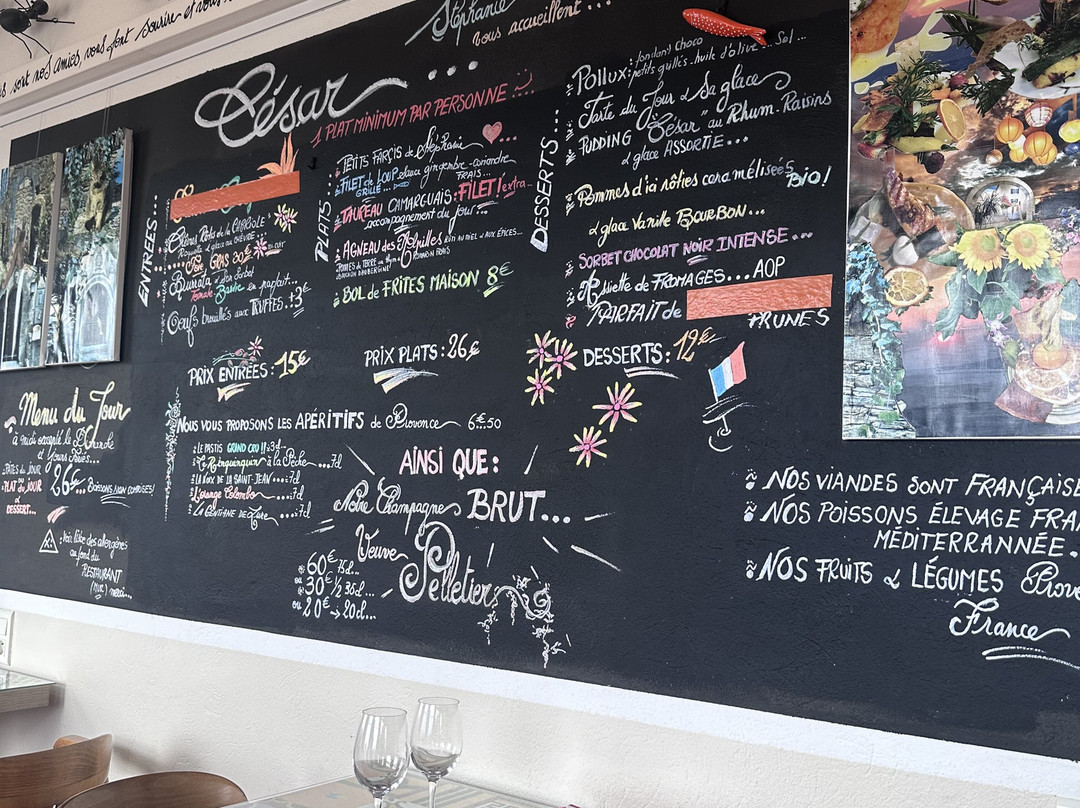 sont nos amies, vous font sourire et vous
Stéphanie
vous accueillent...
César...
1 PLAT MINIMUM PAR PERSONNE
ENTREES...
Foie GRAS
Burrata
Tomate Basilic en parfait...
Oeufs brouillés aux TRUFFES +3€
PRIX ENTRÉES: 15€
PLATS...
PETITS FARÇIS de Stéphanie
FILET de LOUP gingembre-coriandre
GRILLÉ... FRAIS...
TAUREAU CAMARGUAIS: FILET! extra...
accompagnement du jour...
AGNEAU des Alpilles
BOL de FRITES MAISON 8€
PRIX PLATS: 26€
DESSERTS...
POLLUX: fondant choco
petits grillés-huile d'olive... Sel...
Tarte du Jour & Sa glace
PUDDING "César" au Rhum-Raisins
& glace ASSORTIE...
Pommes d'ici rôties caramélisées BIO!
& glace Vanille BOURBON...
SORBET CHOCOLAT NOIR INTENSE...
Assiette de FROMAGES... AOP
PARFAIT de
PRUNES
DESSERTS: 12€
Menu du Jour
à midi excepté le Dimanche
et Jours Fériés...
PLAT du JOUR
DESSERT...
26€... BOISSONS NON COMPRISES!
: voir liste des allergènes
au fond du
RESTAURANT
(MUR) merci...
Nous VOUS PROPOSONS LES APÉRITIFS de Provence 6€50
LE PASTIS GRAND CRU!! 3cl
Le Rinquinquin à la Pêche...7cl
LA NOIX DE LA SAINT-JEAN...7cl
L'orange Colombo...7cl
LA GENTIANE de Lure...7cl
AINSI QUE:
Notre Champagne BRUT...
Veuve Pelletier
60€ 75cl...
ou 30€ 1/2 35cl...
ou 20€ → 20cl...
NOS VIANDES SONT FRANÇAISE
NOS POISSONS ÉLEVAGE FRAN
MÉDITERRANNÉE.
NOS FRUITS & LÉGUMES Prove
France